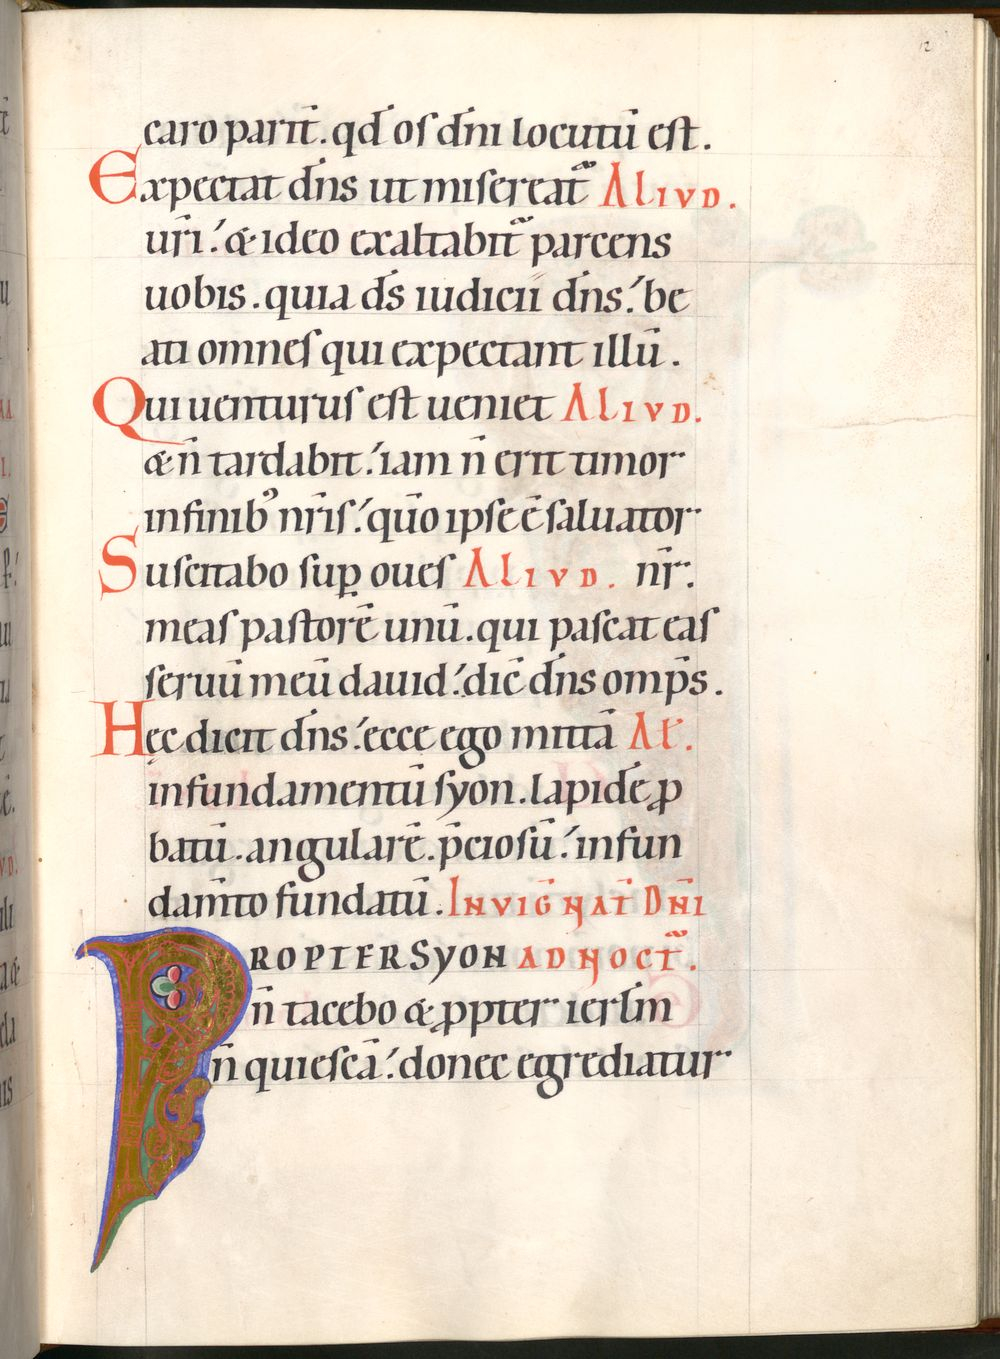 12
caro parit̄. qd̄ os dn̄i locutū est.
Expectat dn̄s ut misereat᷑ ALIVD.
ur̄i. & ideo exaltabit᷑ parcens
uobis. quia ds̄ iudicii dn̄s. be
ati omnes qui expectant illū.
Qui uenturus est ueniet ALIVD.
& n̄ tardabit. iam n̄ erit timor
in finibꝰ nr̄is. quō ipse ē saluator
Suscitabo suꝑ oues ALIVD. nr̄.
meas pastorē unū. qui pascat eas
seruū meū dauid. dic̄ dn̄s omp̄s.
Hęc dicit dn̄s. ecce ego mittā Al̄.
in fundamentū syon. lapidē ꝓ
batū. angularē. p̄ciosū. in fun
dam̄to fundatū. IN VIGN̄AT̄ DN̄I
PROPTER SYON AD NOCT᷑.
n̄ tacebo & ꝓpter ierlm̄
n̄ quiescā. donec egrediatur